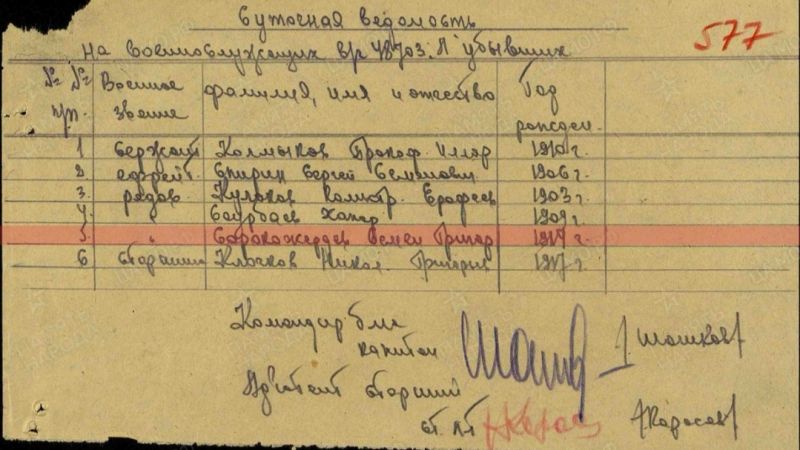 Суточная ведомость
на военнослужащих в/ч 48703 "Л" убывших
577
№ № п/п. Военное звание фамилия, имя и отчество Год рожден.
1 сержант Колмыков Прокоф. Иллар 1910 г.
2 ефрейт. Спирин Сергей Семенови 1906 г.
3. рядов. Кулаков Ерофеев 1903 г.
4. 1909 г.
5. " Семен Григор 1917 г.
6 старшин Клочков Никол. Григорие 1917 г.
Командир б-на
капитан /Шашков/
Адъютант старший
ст. л-т /Карасов/